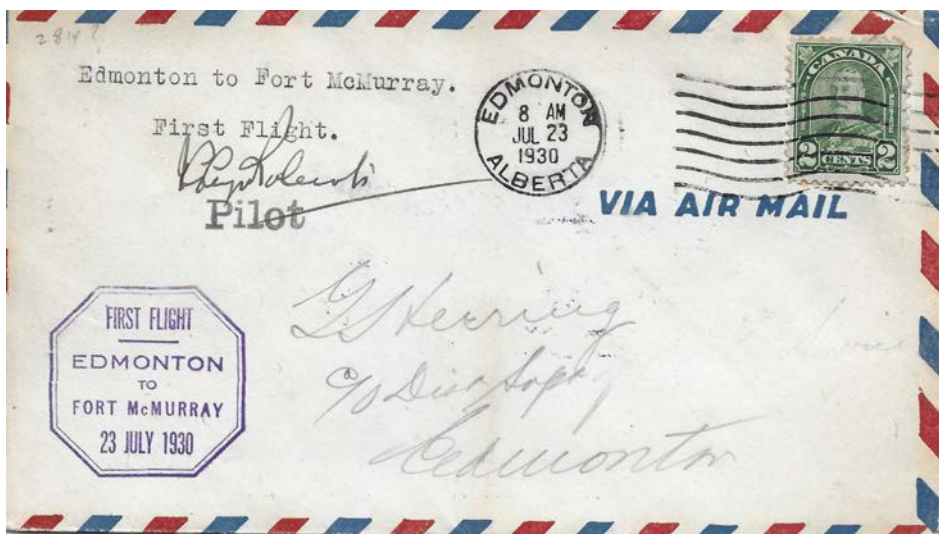 Edmonton to Fort McMurray.
First Flight.
Pilot
EDMONTON
8 AM
JUL 23
1930
ALBERTA
CANADA
2 CENTS 2
VIA AIR MAIL
FIRST FLIGHT
EDMONTON
TO
FORT McMURRAY
23 JULY 1930
GS Herring
c/o
Edmonton